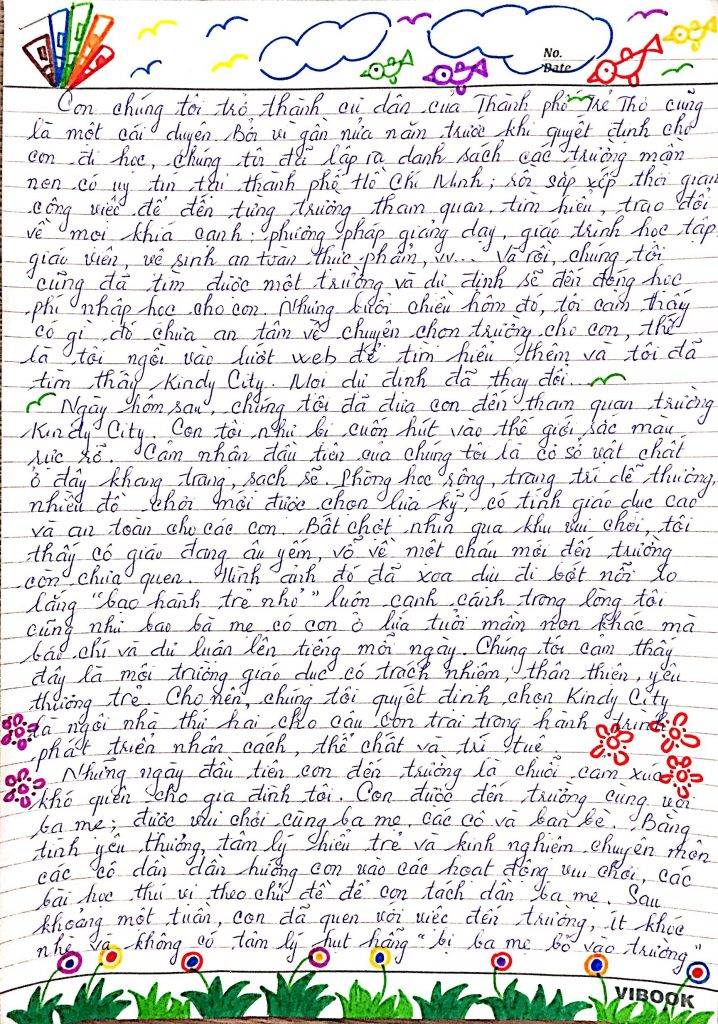 No.
Date
Con chúng tôi trở thành cư dân của Thành phố Trẻ Thơ cũng
là một cái duyên. Bởi vì gần nửa năm trước khi quyết định cho
con đi học, chúng tôi đã lập ra danh sách các trường mầm
non có uy tín tại thành phố Hồ Chí Minh; rồi sắp xếp thời gian
công việc để đến từng trường tham quan, tìm hiểu, trao đổi
về mọi khía cạnh: phương pháp giảng dạy, giáo trình học tập
giáo viên, vệ sinh an toàn thực phẩm, vv... Và rồi, chúng tôi
cũng đã tìm được một trường và dự định sẽ đến đóng học
phí nhập học cho con. Nhưng buổi chiều hôm đó, tôi cảm thấy
có gì đó chưa an tâm về chuyện chọn trường cho con, thế
là tôi ngồi vào lướt web để tìm hiểu thêm và tôi đã
tìm thấy Kindy City. Mọi dự định đã thay đổi...
Ngày hôm sau, chúng tôi đã đưa con đến tham quan trường
Kindy City. Con tôi như bị cuốn hút vào thế giới sắc màu
rực rỡ. Cảm nhận đầu tiên của chúng tôi là cơ sở vật chất
ở đây khang trang, sạch sẽ. Phòng học rộng, trang trí dễ thương,
nhiều đồ chơi mới được chọn lựa kỹ, có tính giáo dục cao
và an toàn cho các con. Bất chợt nhìn qua khu vui chơi, tôi
thấy cô giáo đang âu yếm, vỗ về một cháu mới đến trường
còn chưa quen. Hình ảnh đó đã xoa dịu đi bớt nỗi lo
lắng "bạo hành trẻ nhỏ" luôn canh cánh trong lòng tôi
cũng như bao ba mẹ có con ở lứa tuổi mầm non khác mà
báo chí và dư luận lên tiếng mỗi ngày. Chúng tôi cảm thấy
đây là môi trường giáo dục có trách nhiệm, thân thiện, yêu
thương trẻ. Cho nên, chúng tôi quyết định chọn Kindy City
là ngôi nhà thứ hai cho cậu con trai trong hành trình
phát triển nhân cách, thể chất và trí tuệ.
Những ngày đầu tiên con đến trường là chuỗi cảm xúc
khó quên cho gia đình tôi. Con được đến trường cùng với
ba mẹ; được vui chơi cùng ba mẹ, các cô và bạn bè. Bằng
tình yêu thương, tâm lý hiểu trẻ và kinh nghiệm chuyên môn
các cô dần dần hướng con vào các hoạt động vui chơi, các
bài học thú vị theo chủ đề để con tách dần ba mẹ. Sau
khoảng một tuần, con đã quen với việc đến trường, ít khóc
nhè và không có tâm lý hụt hẫng "bị ba mẹ bỏ vào trường"
VIBOOK